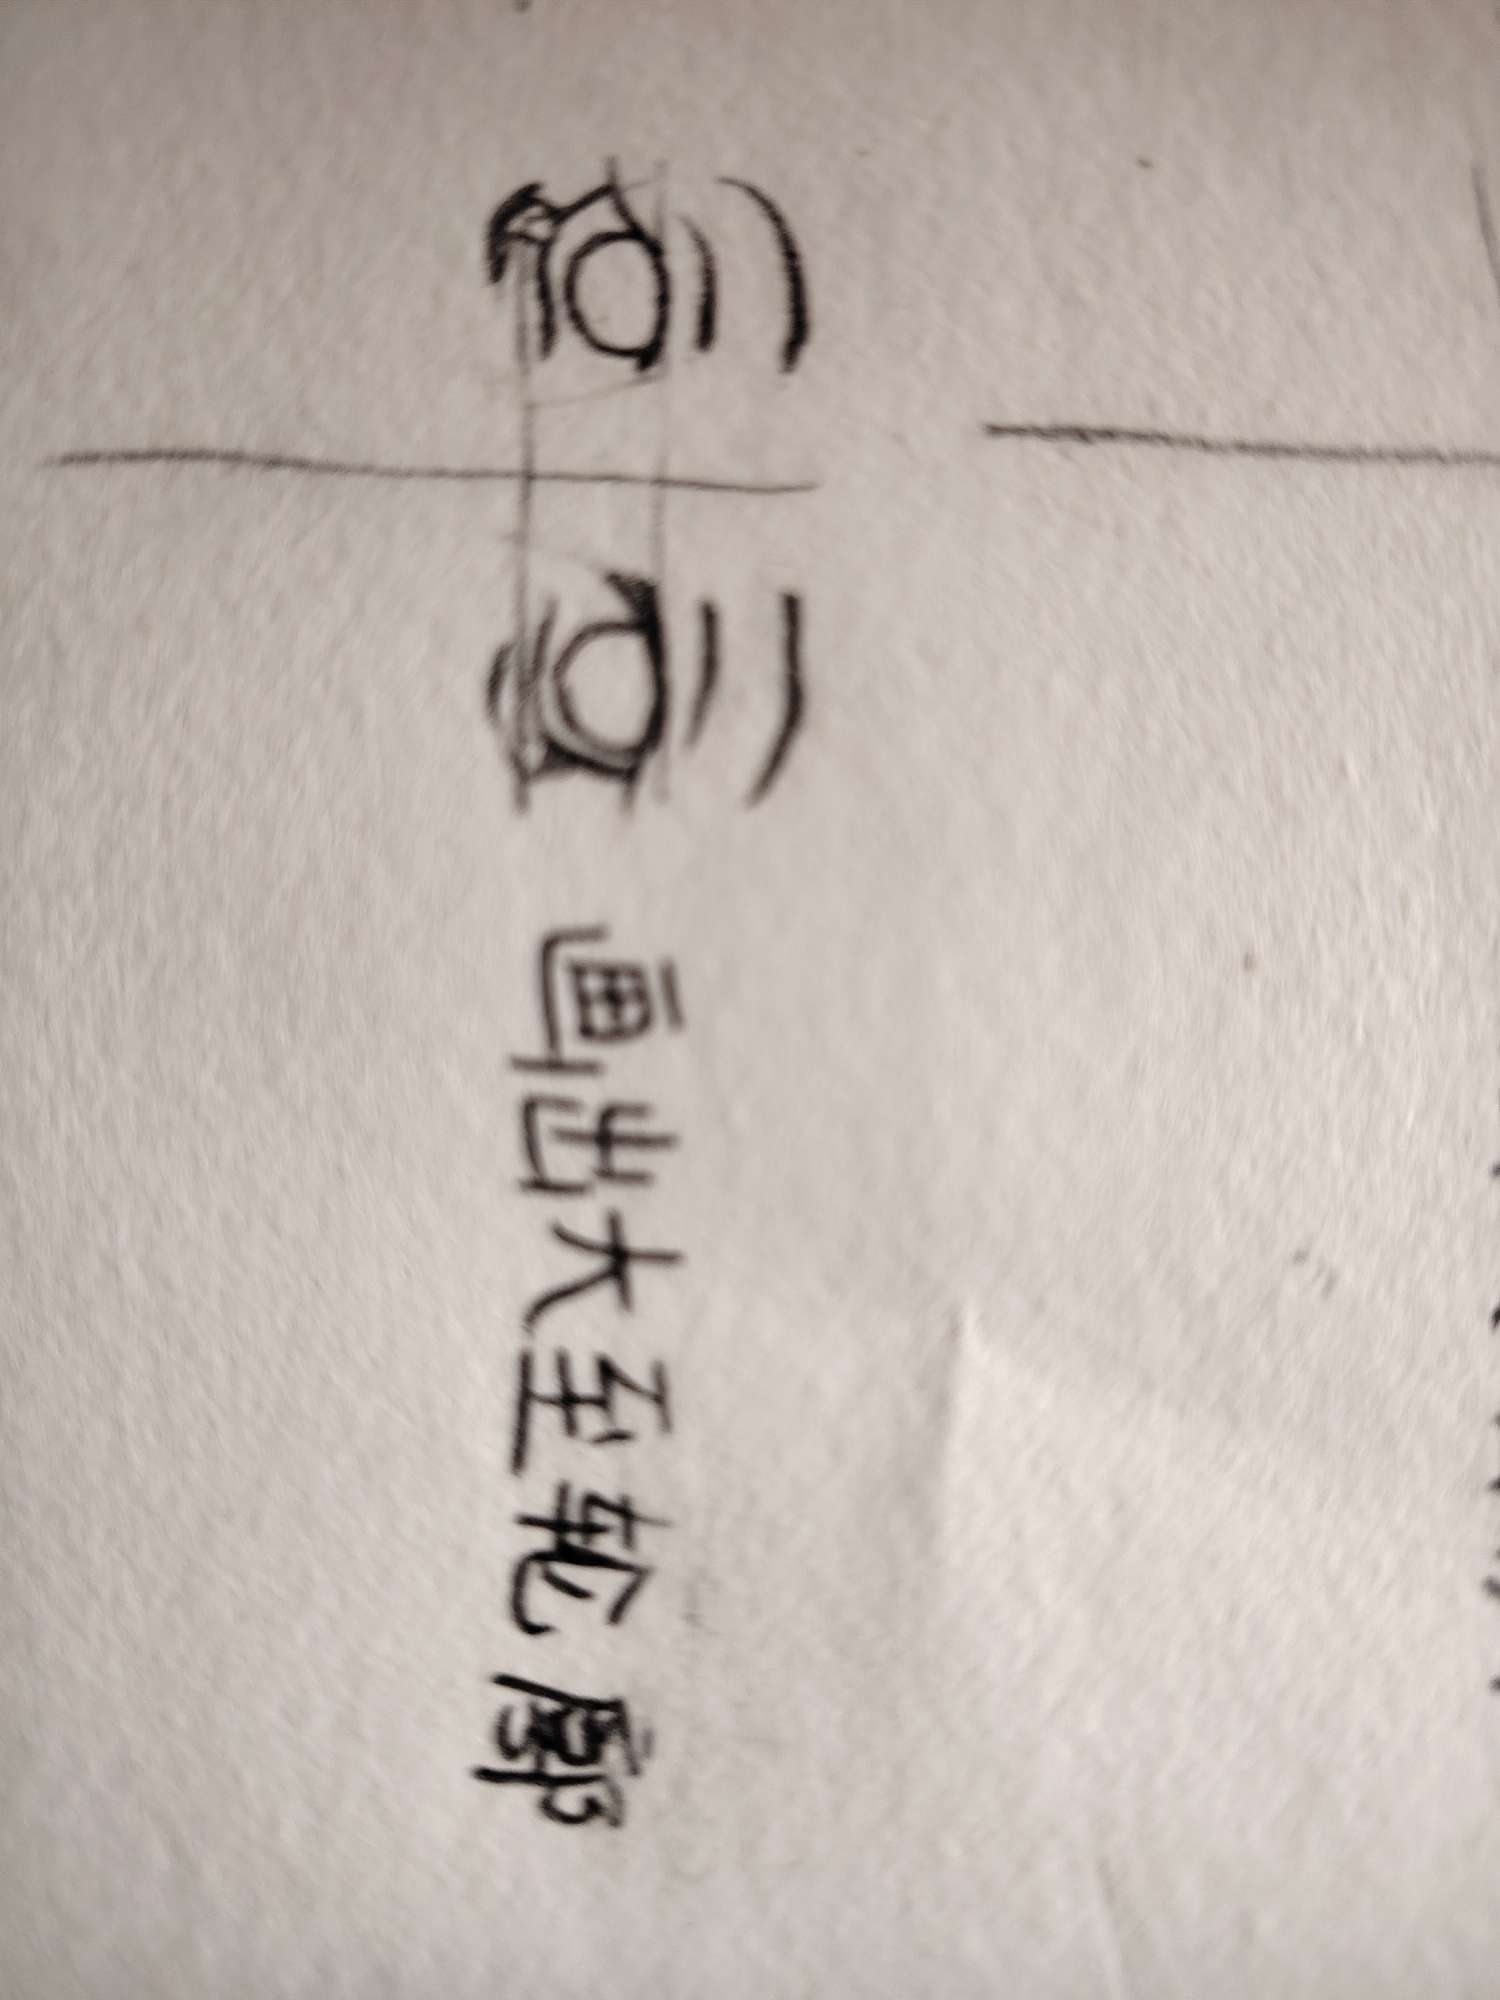 画出大至轮廓